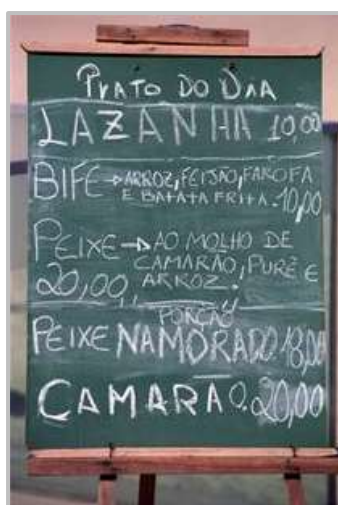 PRATO DO DIA
LAZANHA 10,00
BIFE → ARROZ, FEIJÃO, FAROFA
E BATATA FRITA. 10,00
PEIXE → AO MOLHO DE
CAMARÃO, PURÊ E
20,00,, ARROZ.
PORÇÃO
PEIXE NAMORADO. 18,00
CAMARÃO. 20,00